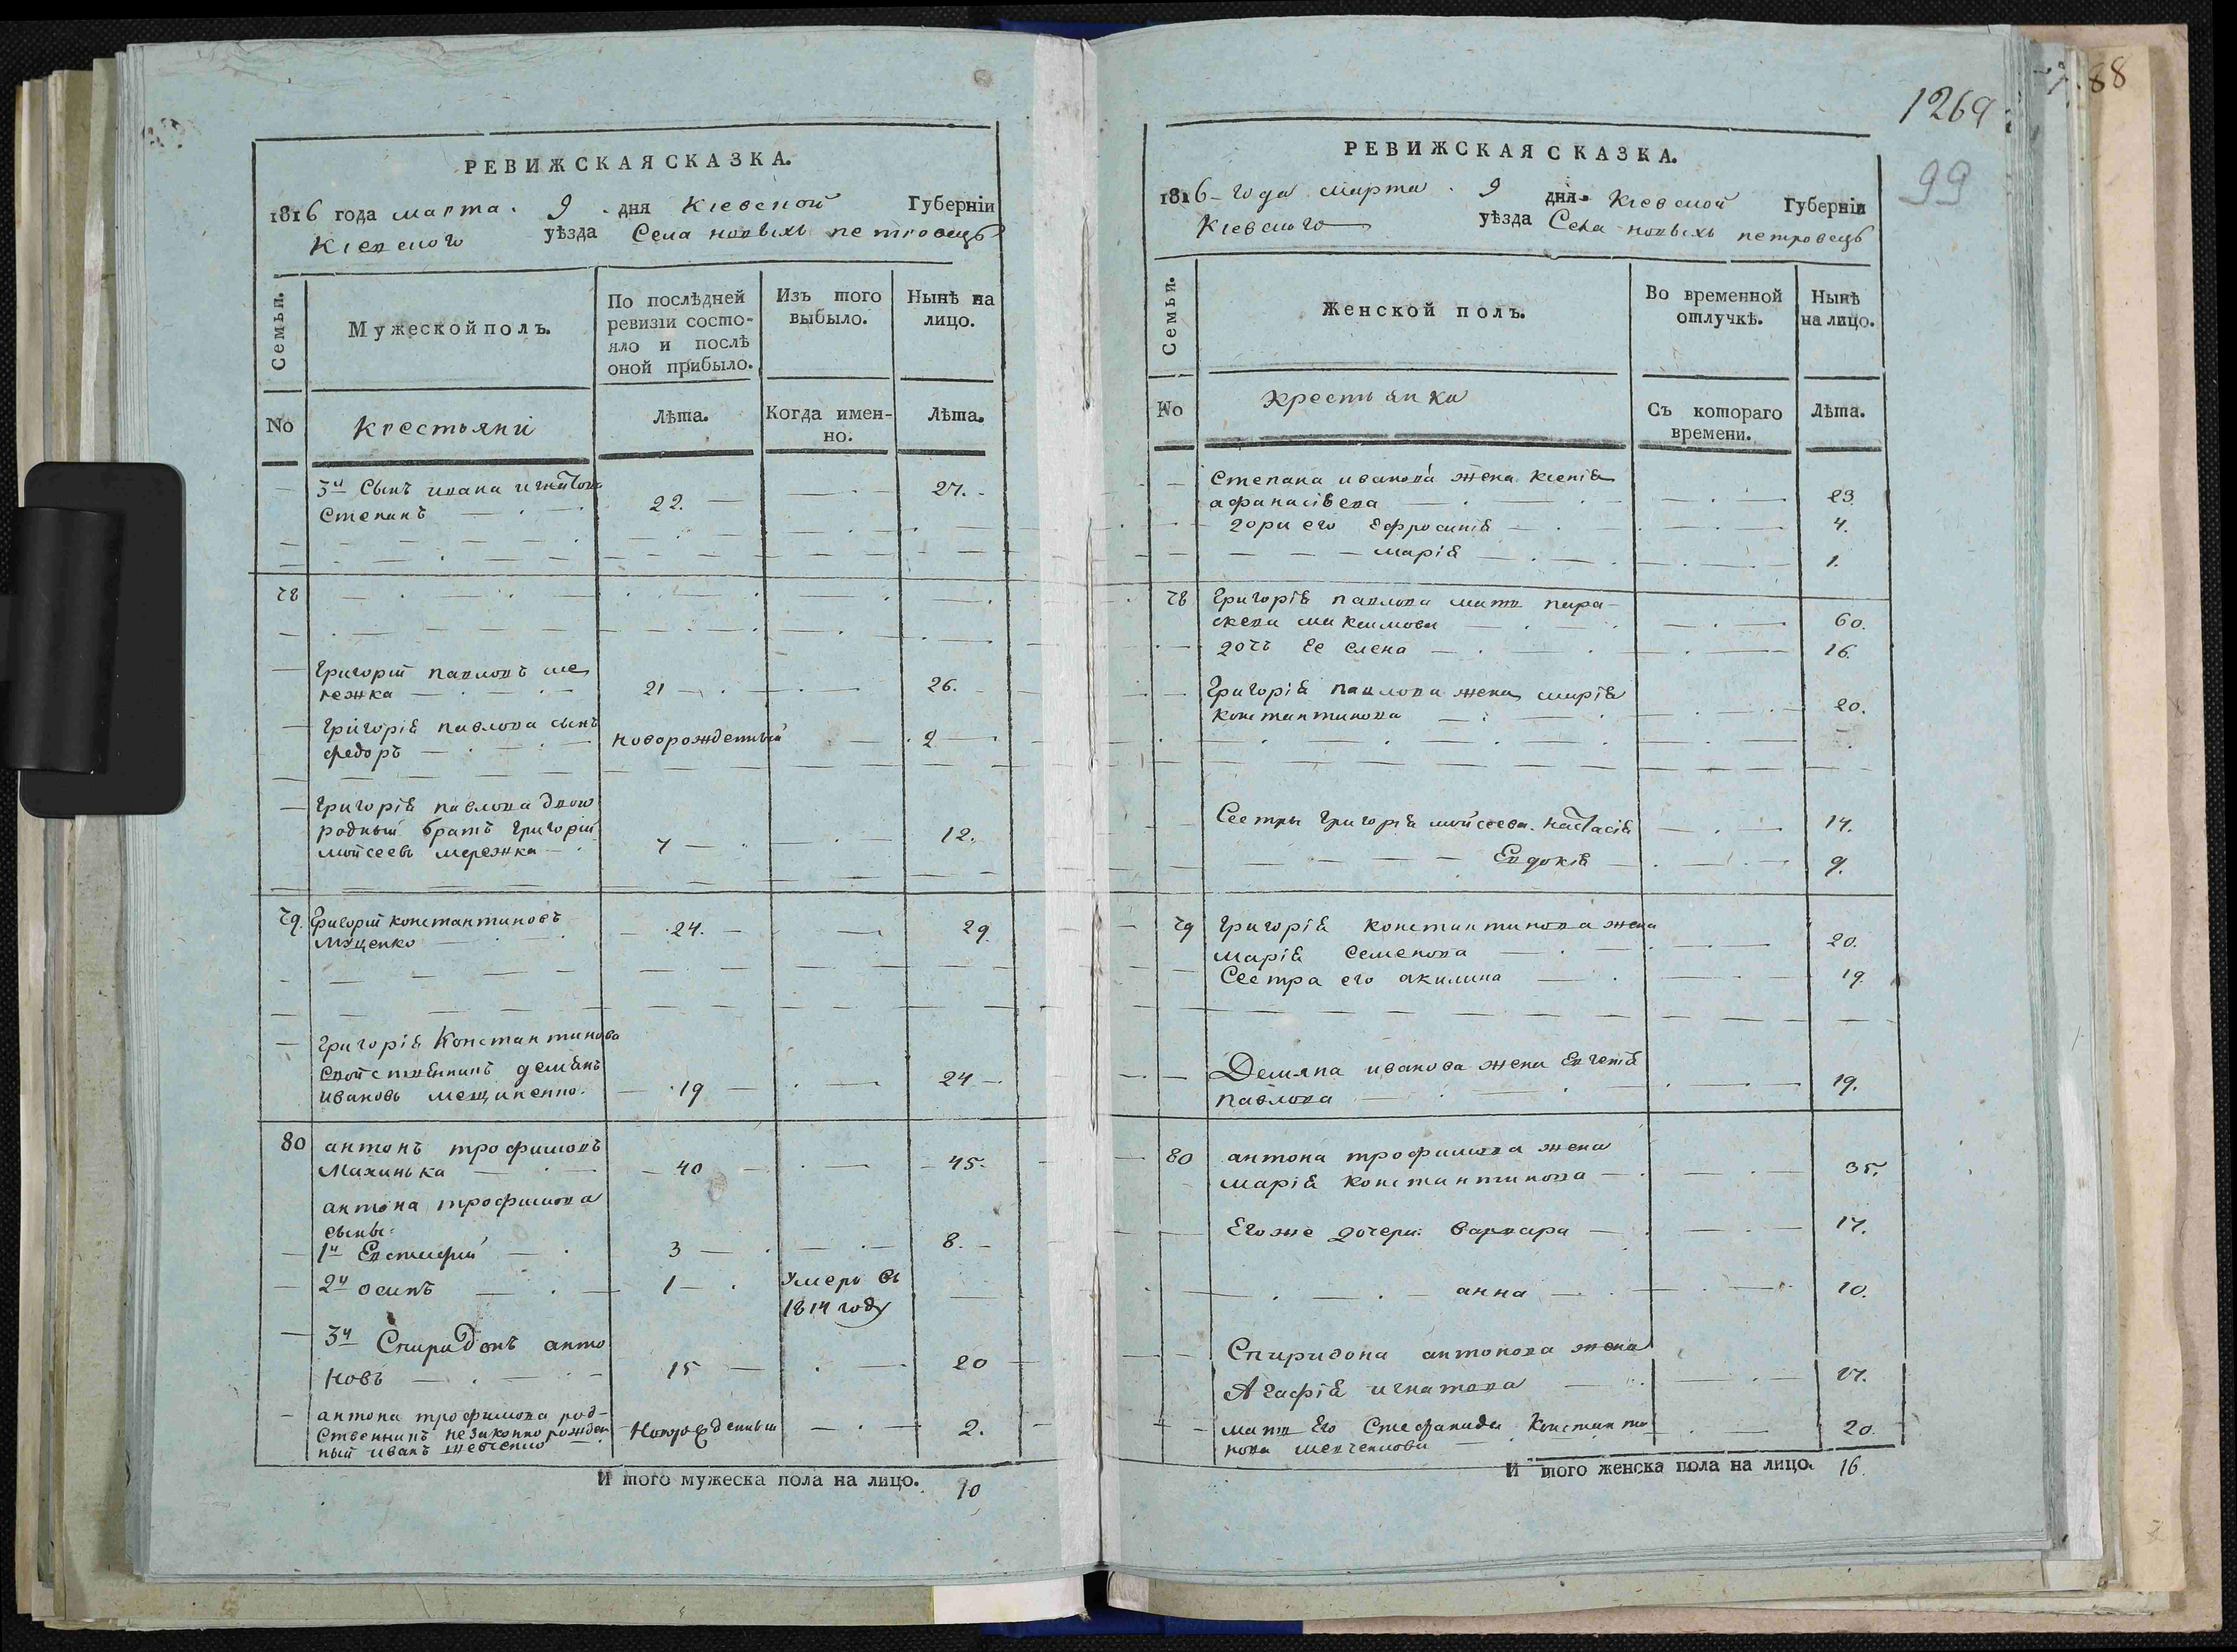 РЕВИЖСКАЯ СКАЗКА.
1816 года марта 9 дня Кіевской Губерніи
Кіевского уѣзда Села новыхъ петровецъ
Семьи.
Мужеской полъ.
По послѣдней ревизіи состояло и послѣ оной прибыло.
Изъ того выбыло.
Нынѣ на лицо.
No
крестьяни
Лѣта.
Когда именно.
Лѣта.
3й Сынъ ивана игнатова
Степанъ 22. 27.
78
Григорій павловъ ме
режка 21 26.
Григорія павлова сынъ
федоръ новорожденный 2
Григорія павлова двою
родный братъ григорій
мойсеевъ мережка 7 12.
79. Григорій константиновъ
24. 29.
Григорія Константинова
свойственникъ демянъ
ивановъ 19 24
80 антонъ трофимовъ
Махинька 40 45.
антона трофимова
сыны:
1й Евстифій 3 8.
2й осипъ 1 Умеръ въ
1814 году
3й Спиридонъ анто
новъ 15 20
антона трофимова род-
ственникъ незаконно рожден
ный иванъ 2.
И того мужеска пола на лицо. 10
1269
88
99
РЕВИЖСКАЯ СКАЗКА.
1816 года марта 9 дня Кіевской Губерніи
Кіевского уѣзда Села новыхъ петровецъ
Семьи.
Женской полъ.
Во временной отлучкѣ.
Нынѣ на лицо.
No
крестьянки
Съ котораго времени.
Лѣта.
Степана иванова жена ксенія
афанасіева 23.
дори его Ефросинія 4.
марія 1.
78 Григорія павлова мать пара-
скева максимова 60.
дочъ ее елена 16.
Григорія павлова жена марія
константинова 20.
Сестры григорія мойсеева настасія 14.
Евдокія 9.
79 Григорія константинова жена
марія Семенова 20.
Сестра его акилина 19.
Демяна иванова жена Евгенія
павлова 19.
80 антона трофимова жена
марія константинова 35.
Его же дочери: варвара 17.
анна 10.
Спиридона антонова жена
Агафія игнатова 17.
мать Его Стефанида Константи
нова шевченкова 20.
И того женска пола на лицо. 16.